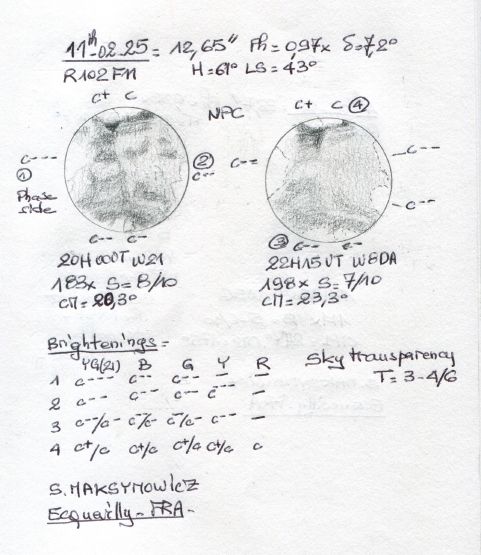 11th-02.25 = 12,65" Ph = 0,97% δ=7,2°
R102 FH H=61° LS=43°
C+ C NPC C+ C ④
C---
① ② C-- C-= C--
Phase side
C-- C- ③ C-- C- C--
20H00UT W21 22H15UT W80A
183x S=8/10 198x S=7/10
CM=20,3° CM=23,3°
Brightenings=
YG(21) B G Y R Sky transparency
1 C---- C-- C--- — — T=3-4/6
2 C-- C-- C-- C-- —
3 C-/C- C-/C- C-/C- C-- —
4 C+/C C+/C C+/C C+/C C
S. MAKSYMOWICZ
Ecquevilly - FRA -